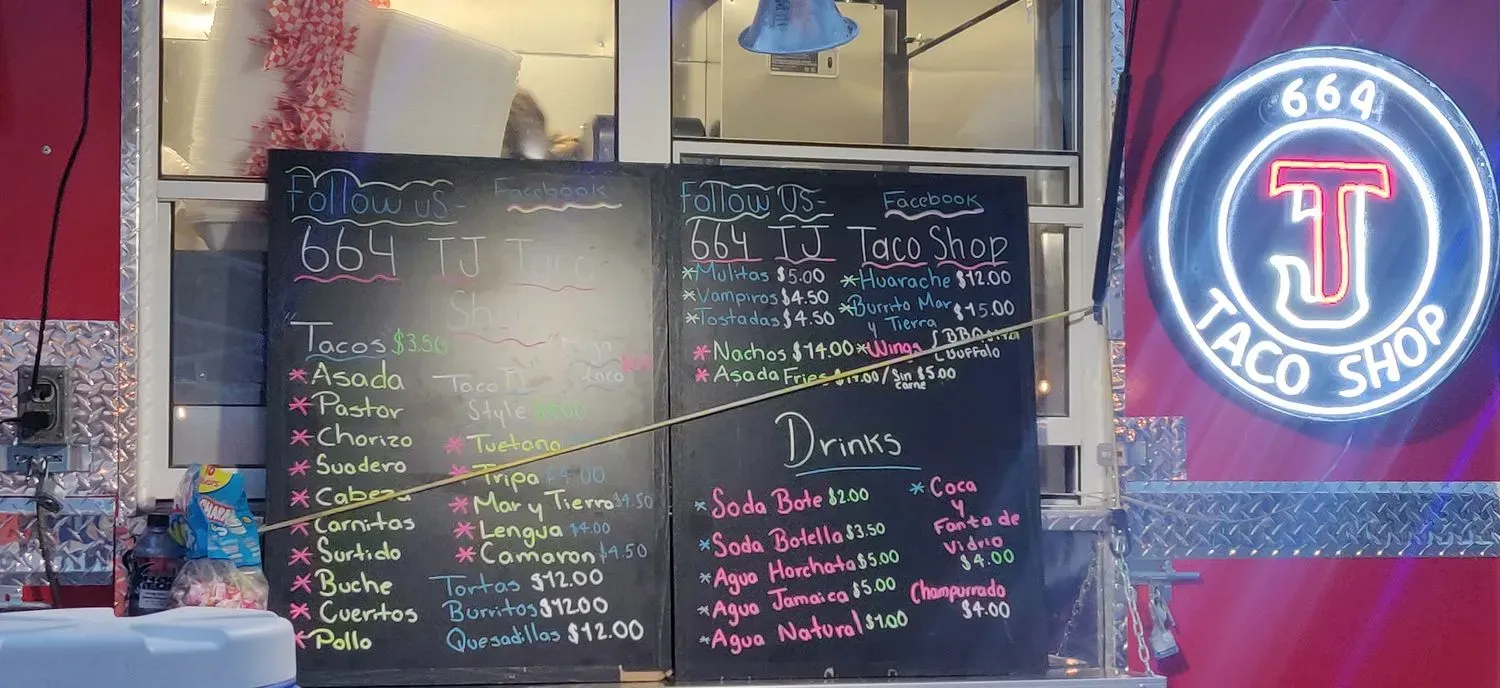 Follow us-
Facebook
664 TJ Taco
Sh
Tacos $3.50
* Asada
* Pastor
* Chorizo
* Suadero
* Cabeza
* Carnitas
* Surtido
* Buche
* Cueritos
* Pollo
Taco TJ
Style
* Tuetano
* Tripa $4.00
* Mar y Tierra $4.50
* Lengua $4.00
* Camaron $4.50
Tortas $12.00
Burritos $12.00
Quesadillas $12.00
Follow US-
Facebook
664 TJ Taco Shop
* Mulitas $5.00
* Vampiros $4.50
* Tostadas $4.50
* Huarache $12.00
* Burrito Mar
y Tierra $15.00
* Nachos $14.00
* Wings
Buffalo
* Asada Fries / Sin $5.00
carne
Drinks
* Soda Bote $2.00
* Soda Botella $3.50
* Agua Horchata $5.00
* Agua Jamaica $5.00
* Agua Natural $1.00
* Coca
y
Fanta de
Vidrio
$4.00
Champurrado
$4.00
664
TJ
TACO SHOP